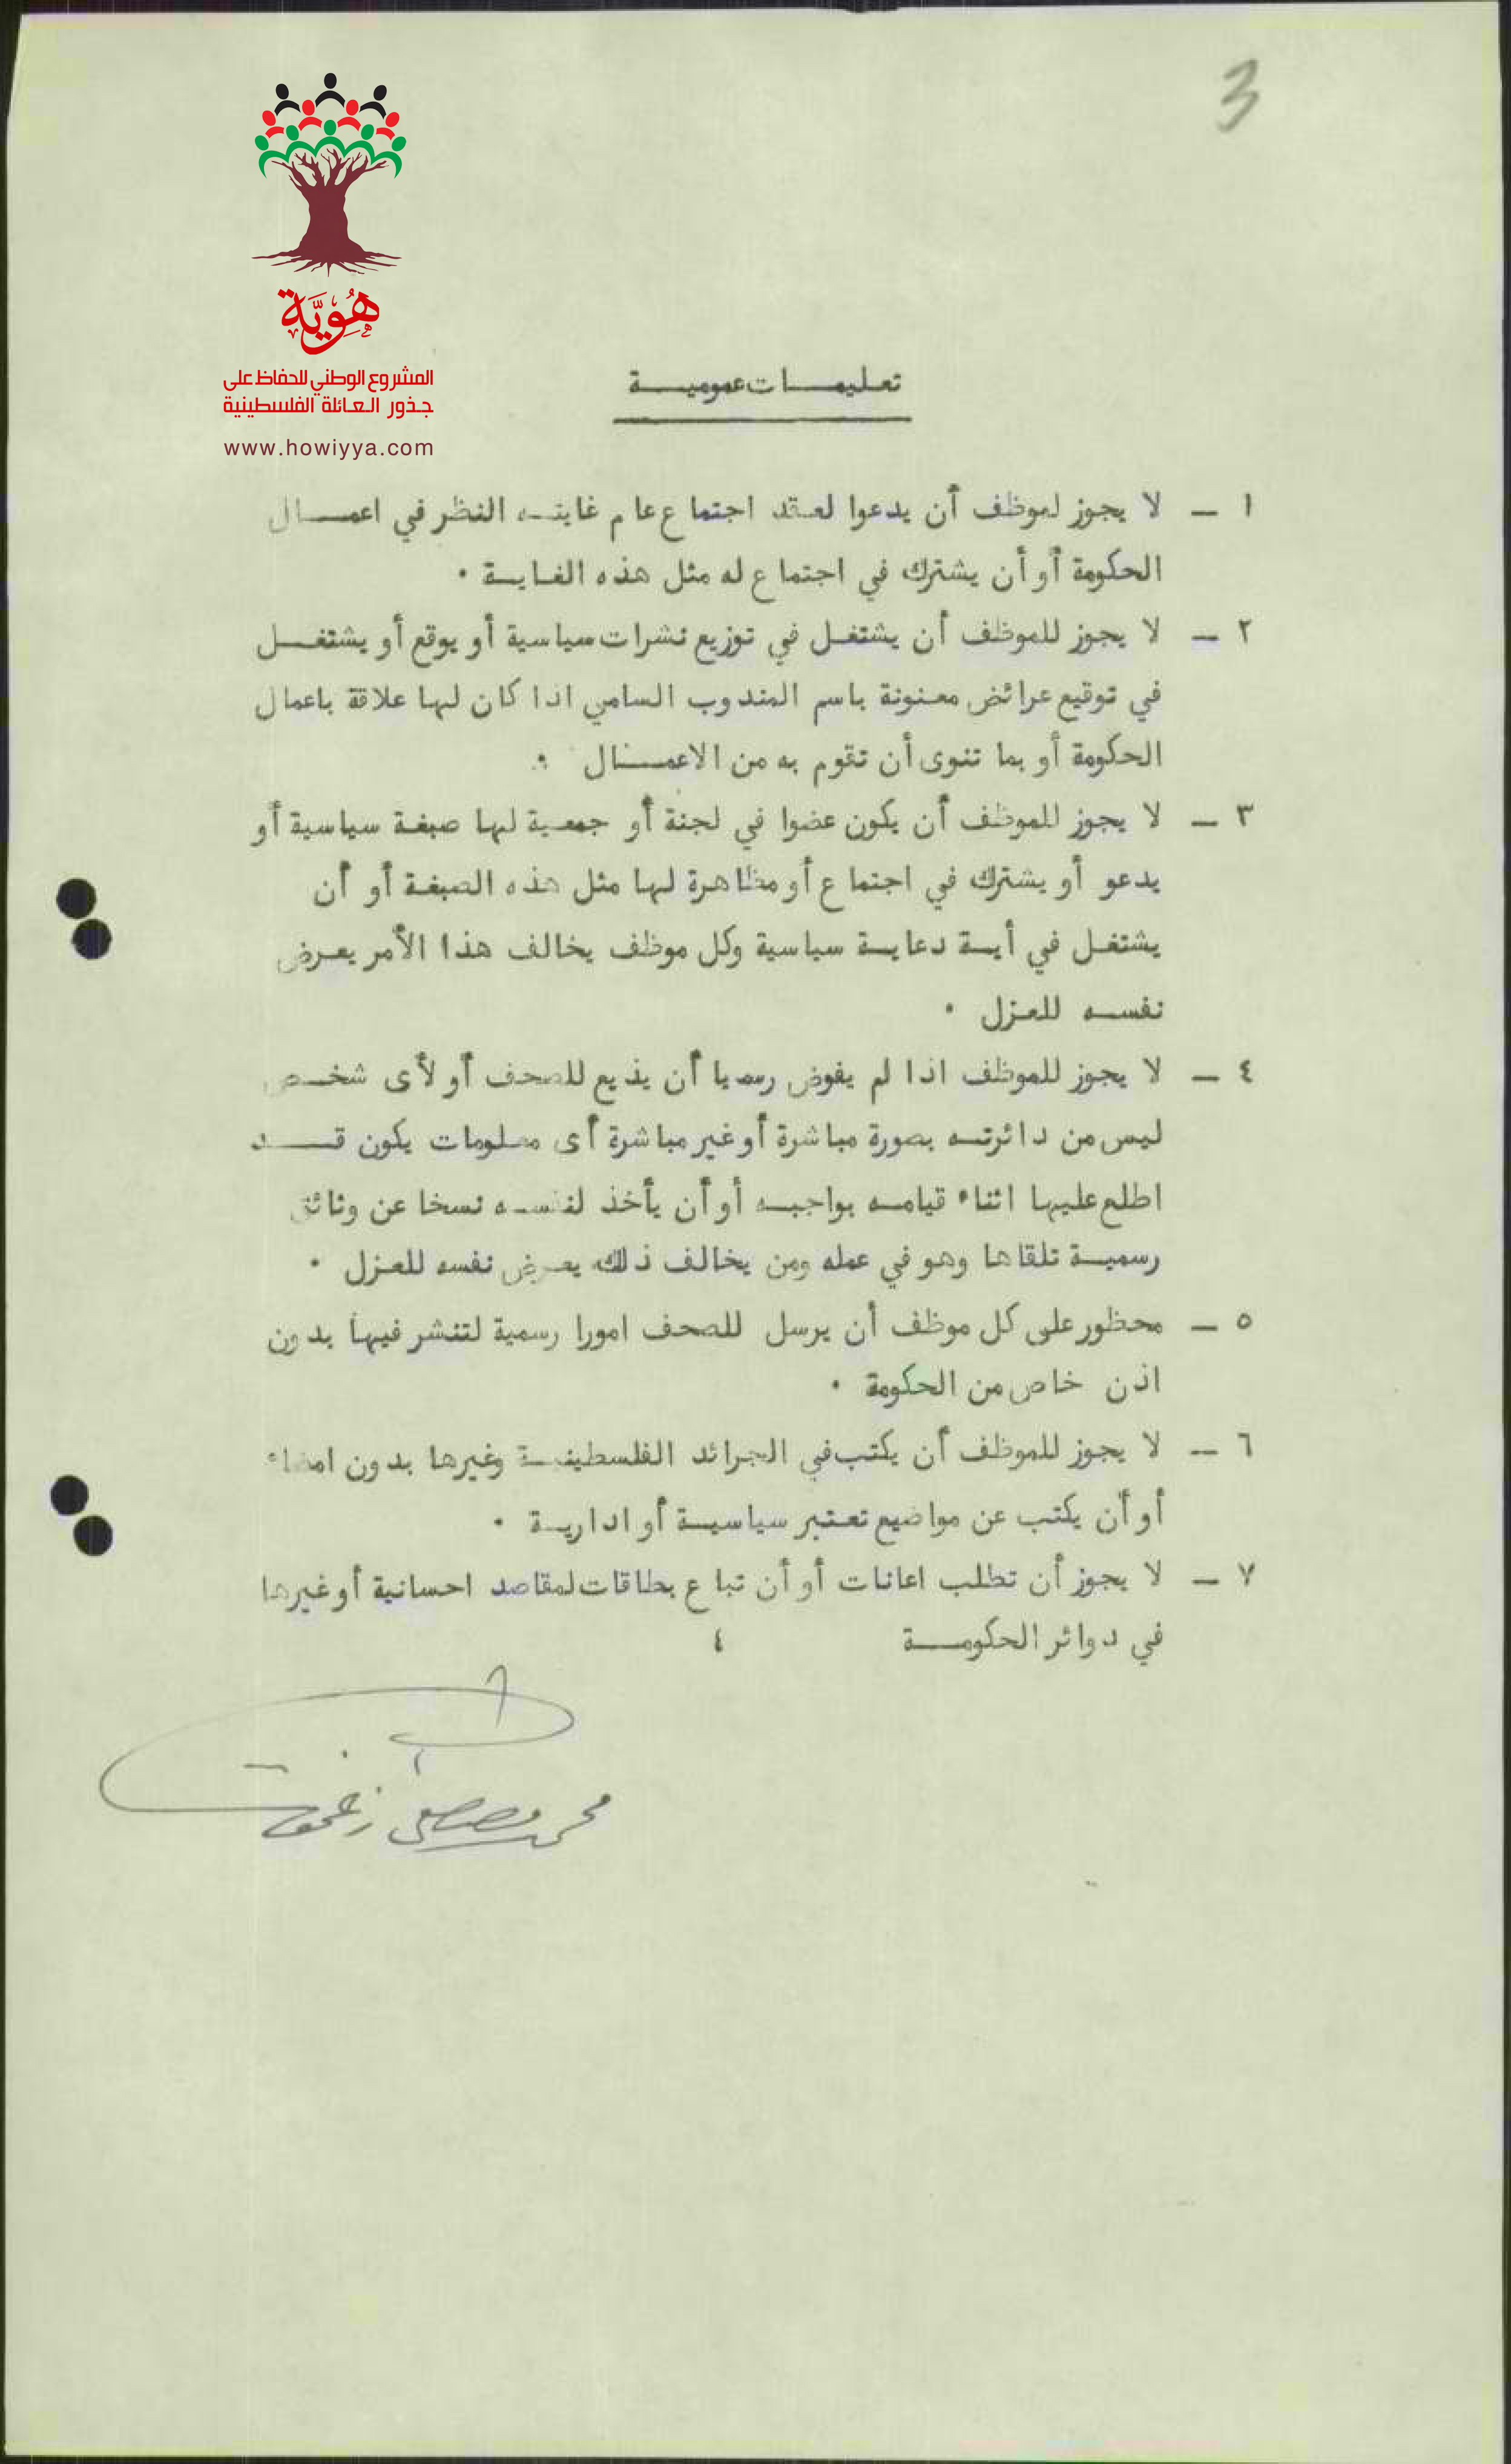 3
هُوِيَّة
المشروع الوطني للحفاظ على
جذور العائلة الفلسطينية
www.howiyya.com
تعليمات عمومية
١ - لا يجوز لموظف أن يدعوا لعقد اجتماع عام غايته النظر في اعمال
الحكومة أو أن يشترك في اجتماع له مثل هذه الغاية .
٢ - لا يجوز للموظف أن يشتغل في توزيع نشرات سياسية أو يوقع أو يشتغل
في توقيع عرائض معنونة باسم المندوب السامي اذا كان لها علاقة باعمال
الحكومة أو بما تنوى أن تقوم به من الاعمال .
٣ - لا يجوز للموظف أن يكون عضوا في لجنة أو جمعية لها صبغة سياسية أو
يدعو أو يشترك في اجتماع أو مظاهرة لها مثل هذه الصبغة أو أن
يشتغل في أية دعاية سياسية وكل موظف يخالف هذا الأمر يعرض
نفسه للعزل .
٤ - لا يجوز للموظف اذا لم يفوض رسميا أن يذيع للصحف أو لأى شخص
ليس من دائرته بصورة مباشرة أو غير مباشرة أى معلومات يكون قد
اطلع عليها اثناء قيامه بواجبه أو أن يأخذ لنفسه نسخا عن وثائق
رسمية تلقاها وهو في عمله ومن يخالف ذلك يعرض نفسه للعزل .
٥ - محظور على كل موظف أن يرسل للصحف امورا رسمية لتنشر فيها بدون
اذن خاص من الحكومة .
٦ - لا يجوز للموظف أن يكتب في الجرائد الفلسطينية وغيرها بدون امضاء
أو أن يكتب عن مواضيع تعتبر سياسية أو ادارية .
٧ - لا يجوز أن تطلب اعانات أو أن تباع بطاقات لمقاصد احسانية أو غيرها
في دوائر الحكومة ٤
محمد مصطفى زغموت